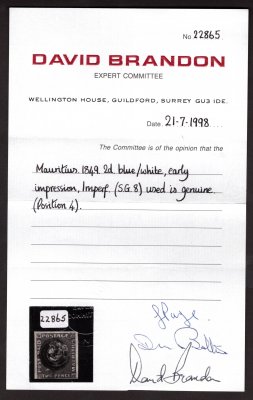 No 22865
DAVID BRANDON
EXPERT COMMITTEE
WELLINGTON HOUSE, GUILDFORD, SURREY GU3 1DE.
Date 21-7-1998.
The Committee is of the opinion that the
Mauritius 1849 2d. blue/white, early
impression, Imperf. (S.G. 8) used is genuine.
(Position 4).
22865
POSTAGE
TWO PENCE
David Brandon